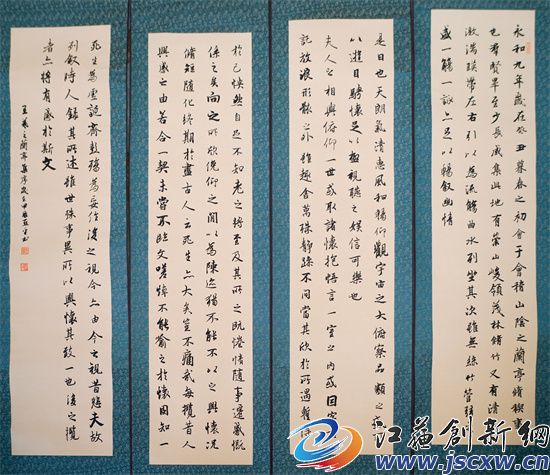 永和九年歲在癸丑暮春之初會于會稽山陰之蘭亭脩禊事
也羣賢畢至少長咸集此地有崇山峻領茂林脩竹又有清
激湍暎帶左右引以為流觴曲水列坐其次雖無絲竹管
盛一觴一詠亦足以暢叙幽情
是日也天朗氣清惠風和暢仰觀宇宙之大俯察品類之盛
以遊目騁懷足以極視聽之娛信可樂也
夫人之相與俯仰一世或取諸懷抱悟言一室之內或因寄
託放浪形骸之外雖趣舍萬殊靜躁不同當其欣於所遇暫得
於己快然自足不知老之將至及其所之既惓情隨事遷感慨
係之矣向之所欣俛仰之閒以為陳迹猶不能不以之興懷況
脩短隨化終期於盡古人云死生亦大矣豈不痛哉每攬昔人
興感之由若合一契未嘗不臨文嗟悼不能喻之於懷固知一
死生為虛誕齊彭殤為妄作後之視今亦由今之視昔悲夫故
列叙時人錄其所述雖世殊事異所以興懷其致一也後之攬
者亦將有感於斯文
王羲之蘭亭集序
江蘇創新網
www.jscxw.com.cn